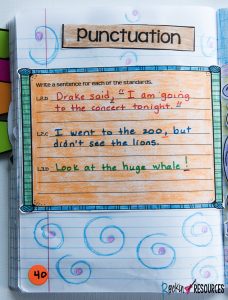 Punctuation
Write a sentence for each of the standards.
L.2.B Drake said, "I am going
to the concert tonight."
L.2.C I went to the zoo, but
didn't see the lions.
L.3.B Look at the huge whale!
40
Rockin RESOURCES